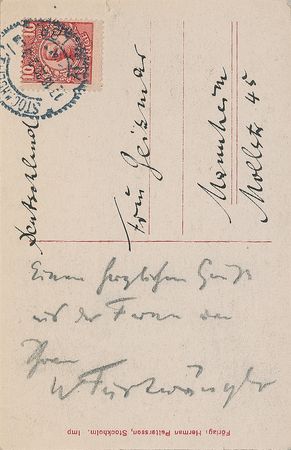 SVERIGE
10
10
STOCKHOLM
Deutschland
Frau Geismar
Mannheim
Mollstr 45
Einen herzlichen Gruß
aus der Ferne von
Ihrem
W Furtwängler
Förlag: Herman Peitersson, Stockholm. Imp